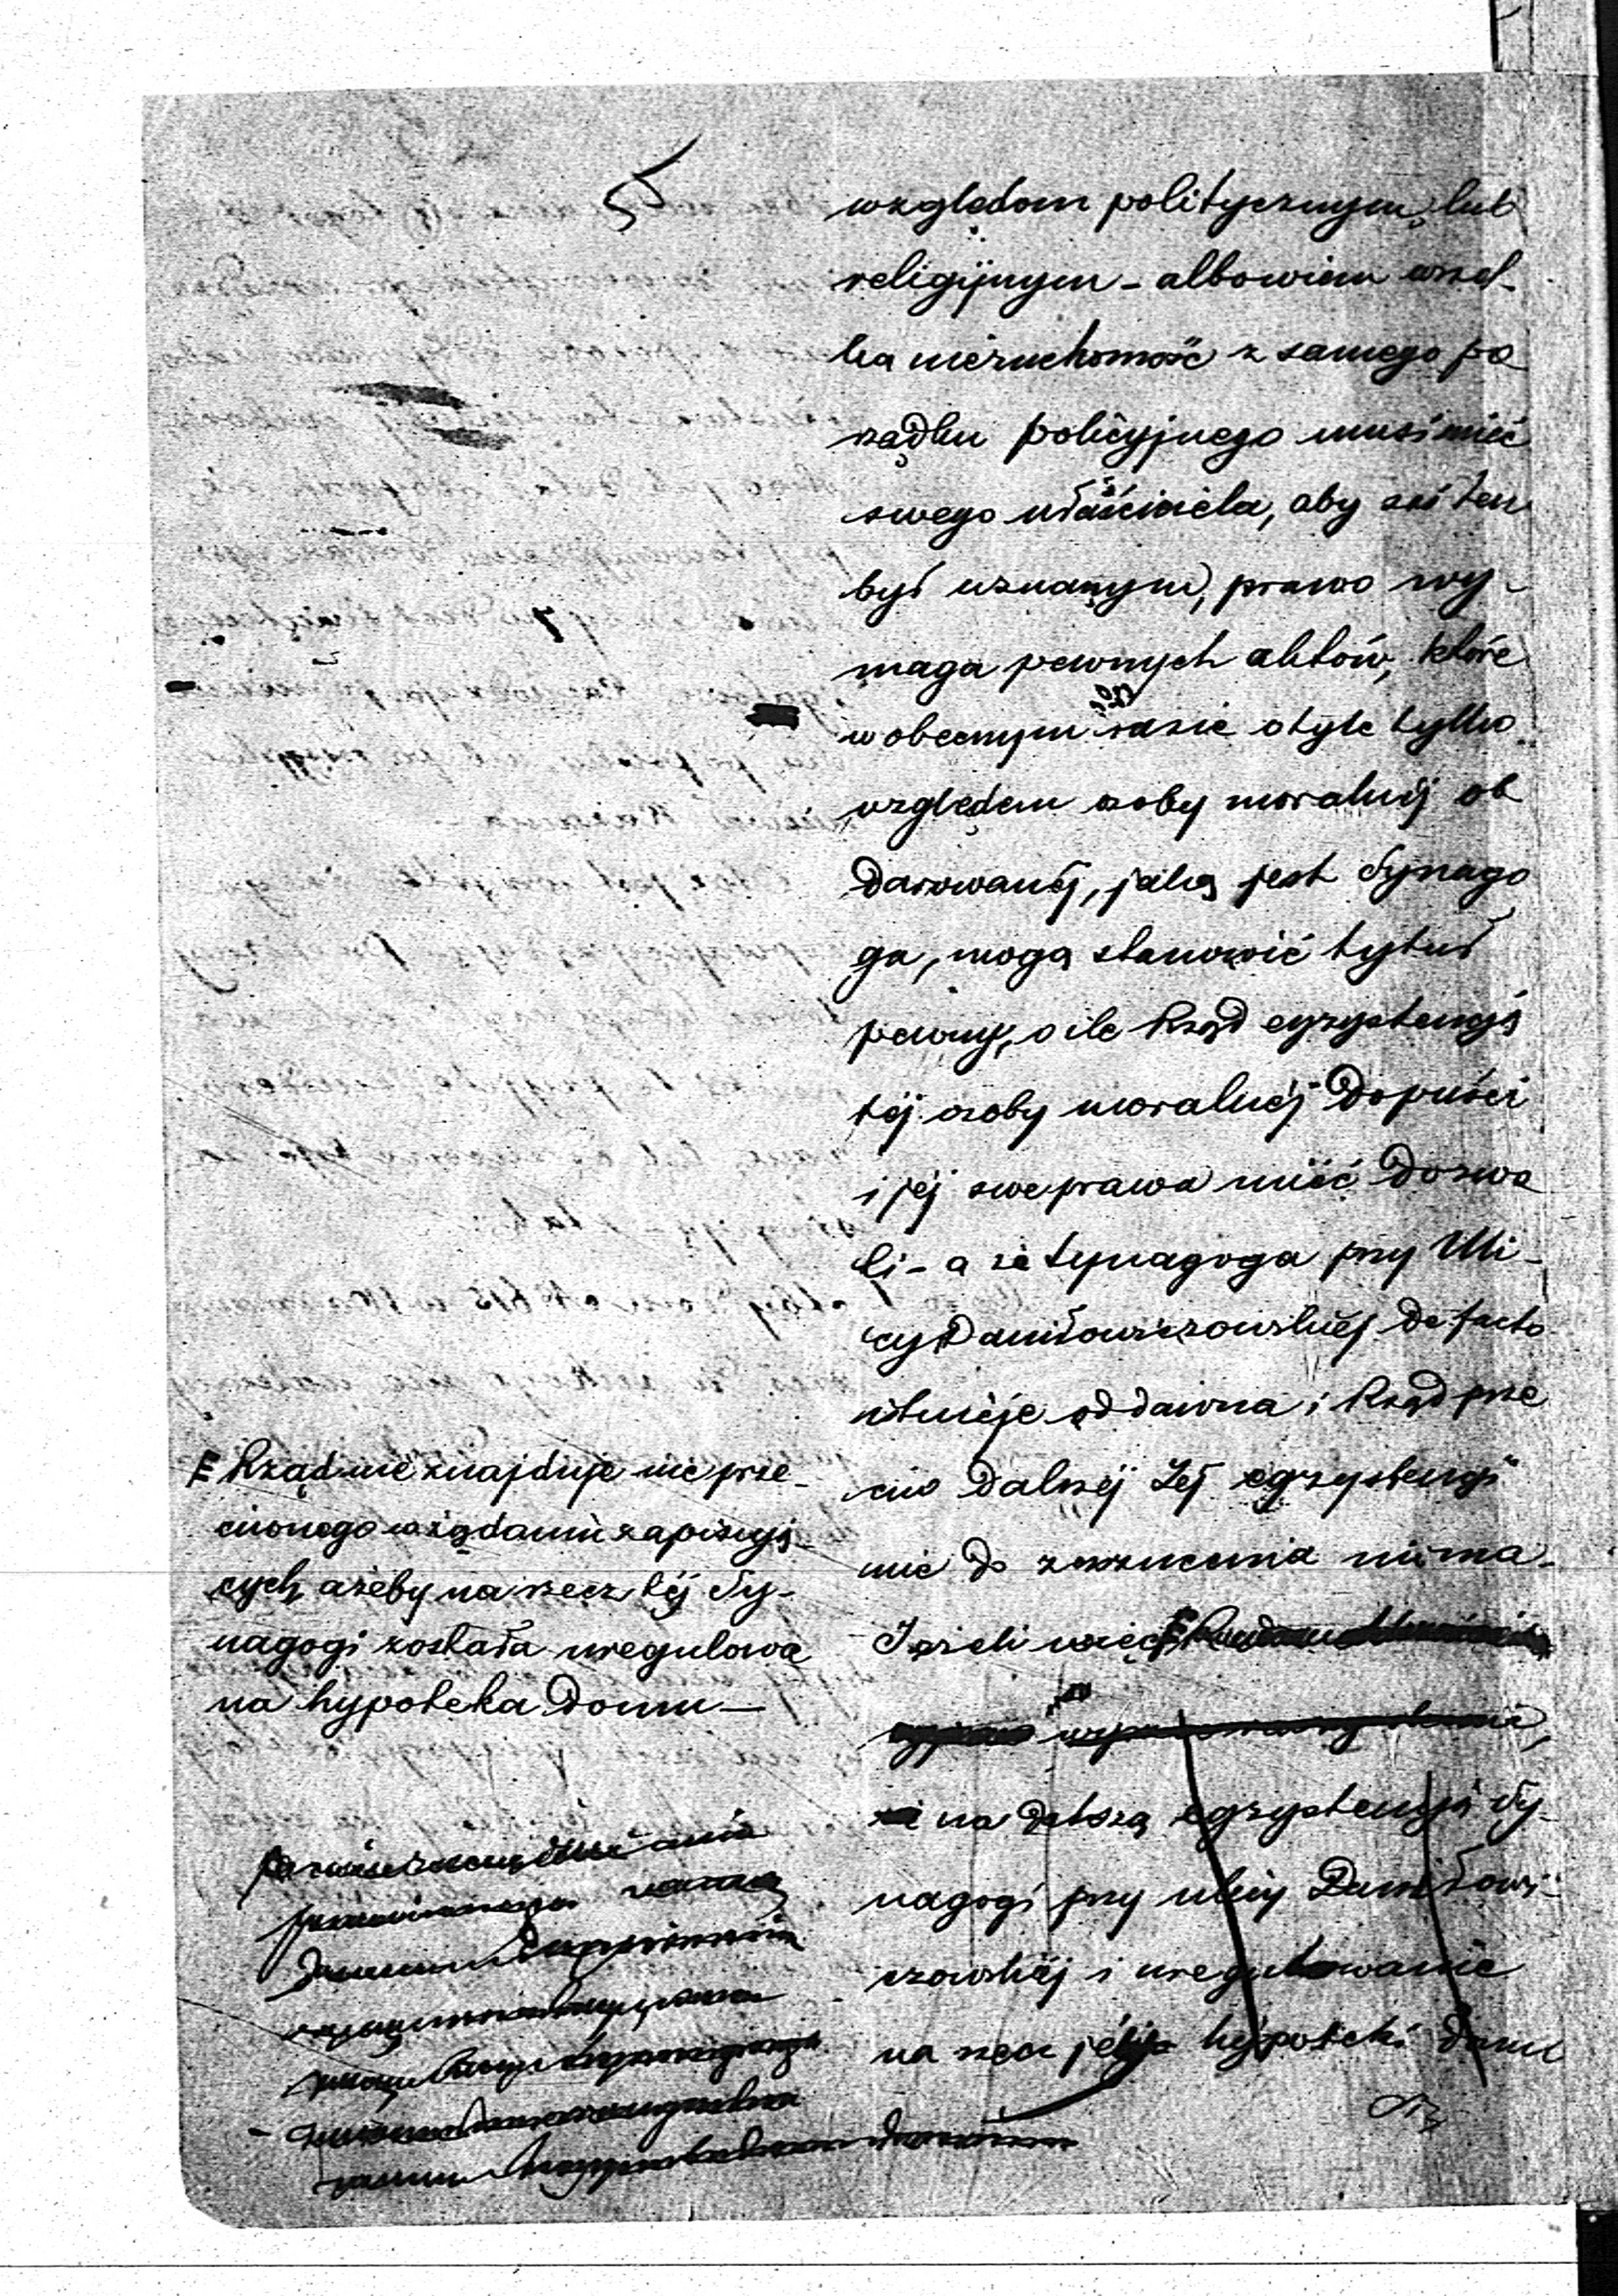 5
względom politycznym, lub
religijnym - albowiem wszel-
ka nieruchomość z samego po
rządku policyjnego musi mieć
swego właściciela, aby zaś ten
był uznanym, prawo wy-
maga pewnych aktów, które
w obecnym razie o tyle tylko
względem osoby moralnéj ob
darowanéj, jaką jest Synago
ga, mogą stanowić tytuł
pewny, o ile Rząd egzystencyą
téj osoby moralnéj dopuści
i jéj swe prawa mieć dozwo
li - a że Synagoga przy Uli-
cy Daniłowiczowskiéj de facto
istnieje oddawna i Rząd prze
ciw dalszéj Jéj egzystencyi
nic do zarzucenia nie ma -
Jeżeli więc
na dalszą egzystencyą Sy-
nagogi przy ulicy Daniłowi-
czowskiéj i uregulowanie
na rzecz jéj hypoteki domu
Rząd nie znajduje nic prze-
ciwnego w żądaniu zapisują-
cych, ażeby na rzecz téj Sy-
nagogi została uregulowa
na hypoteka domu —